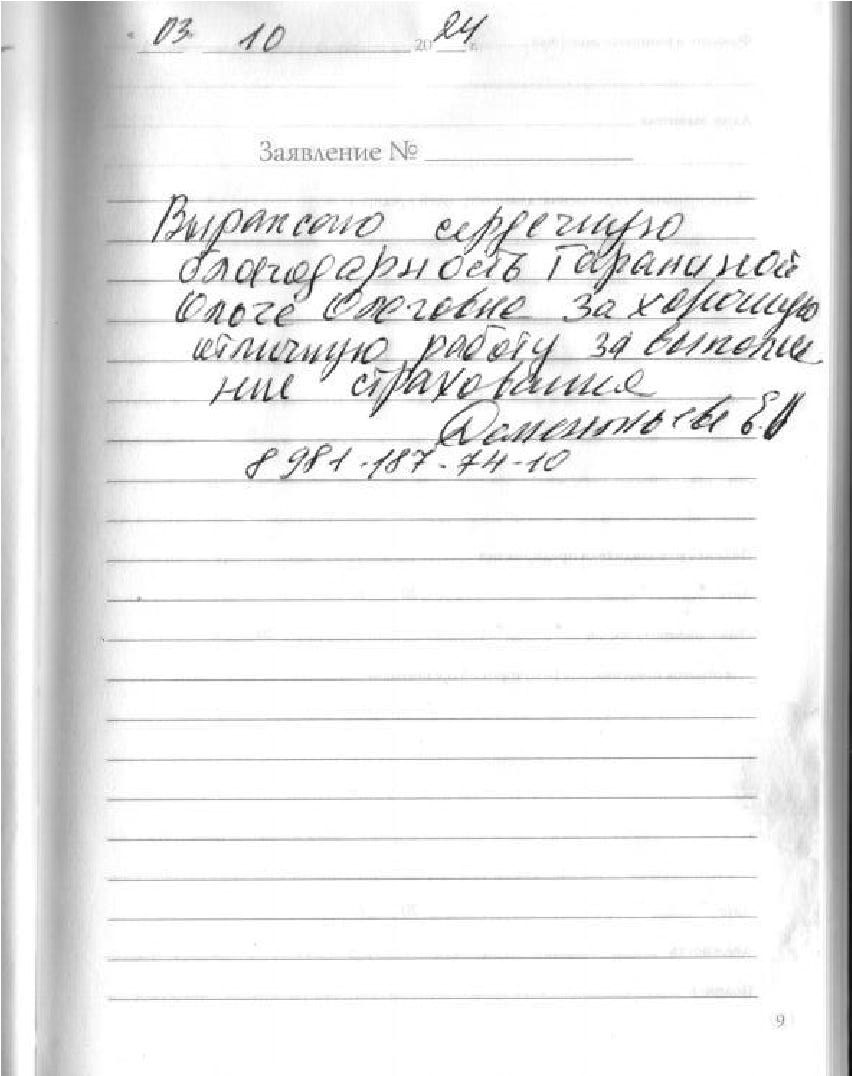 03 10 2024 г.
Заявление №
Выражаю сердечную
благодарность Гараниной
Ольге Олеговне за хорошую
отличную работу за выполне
ние страхования
Е.И
8981-187-74-10
9